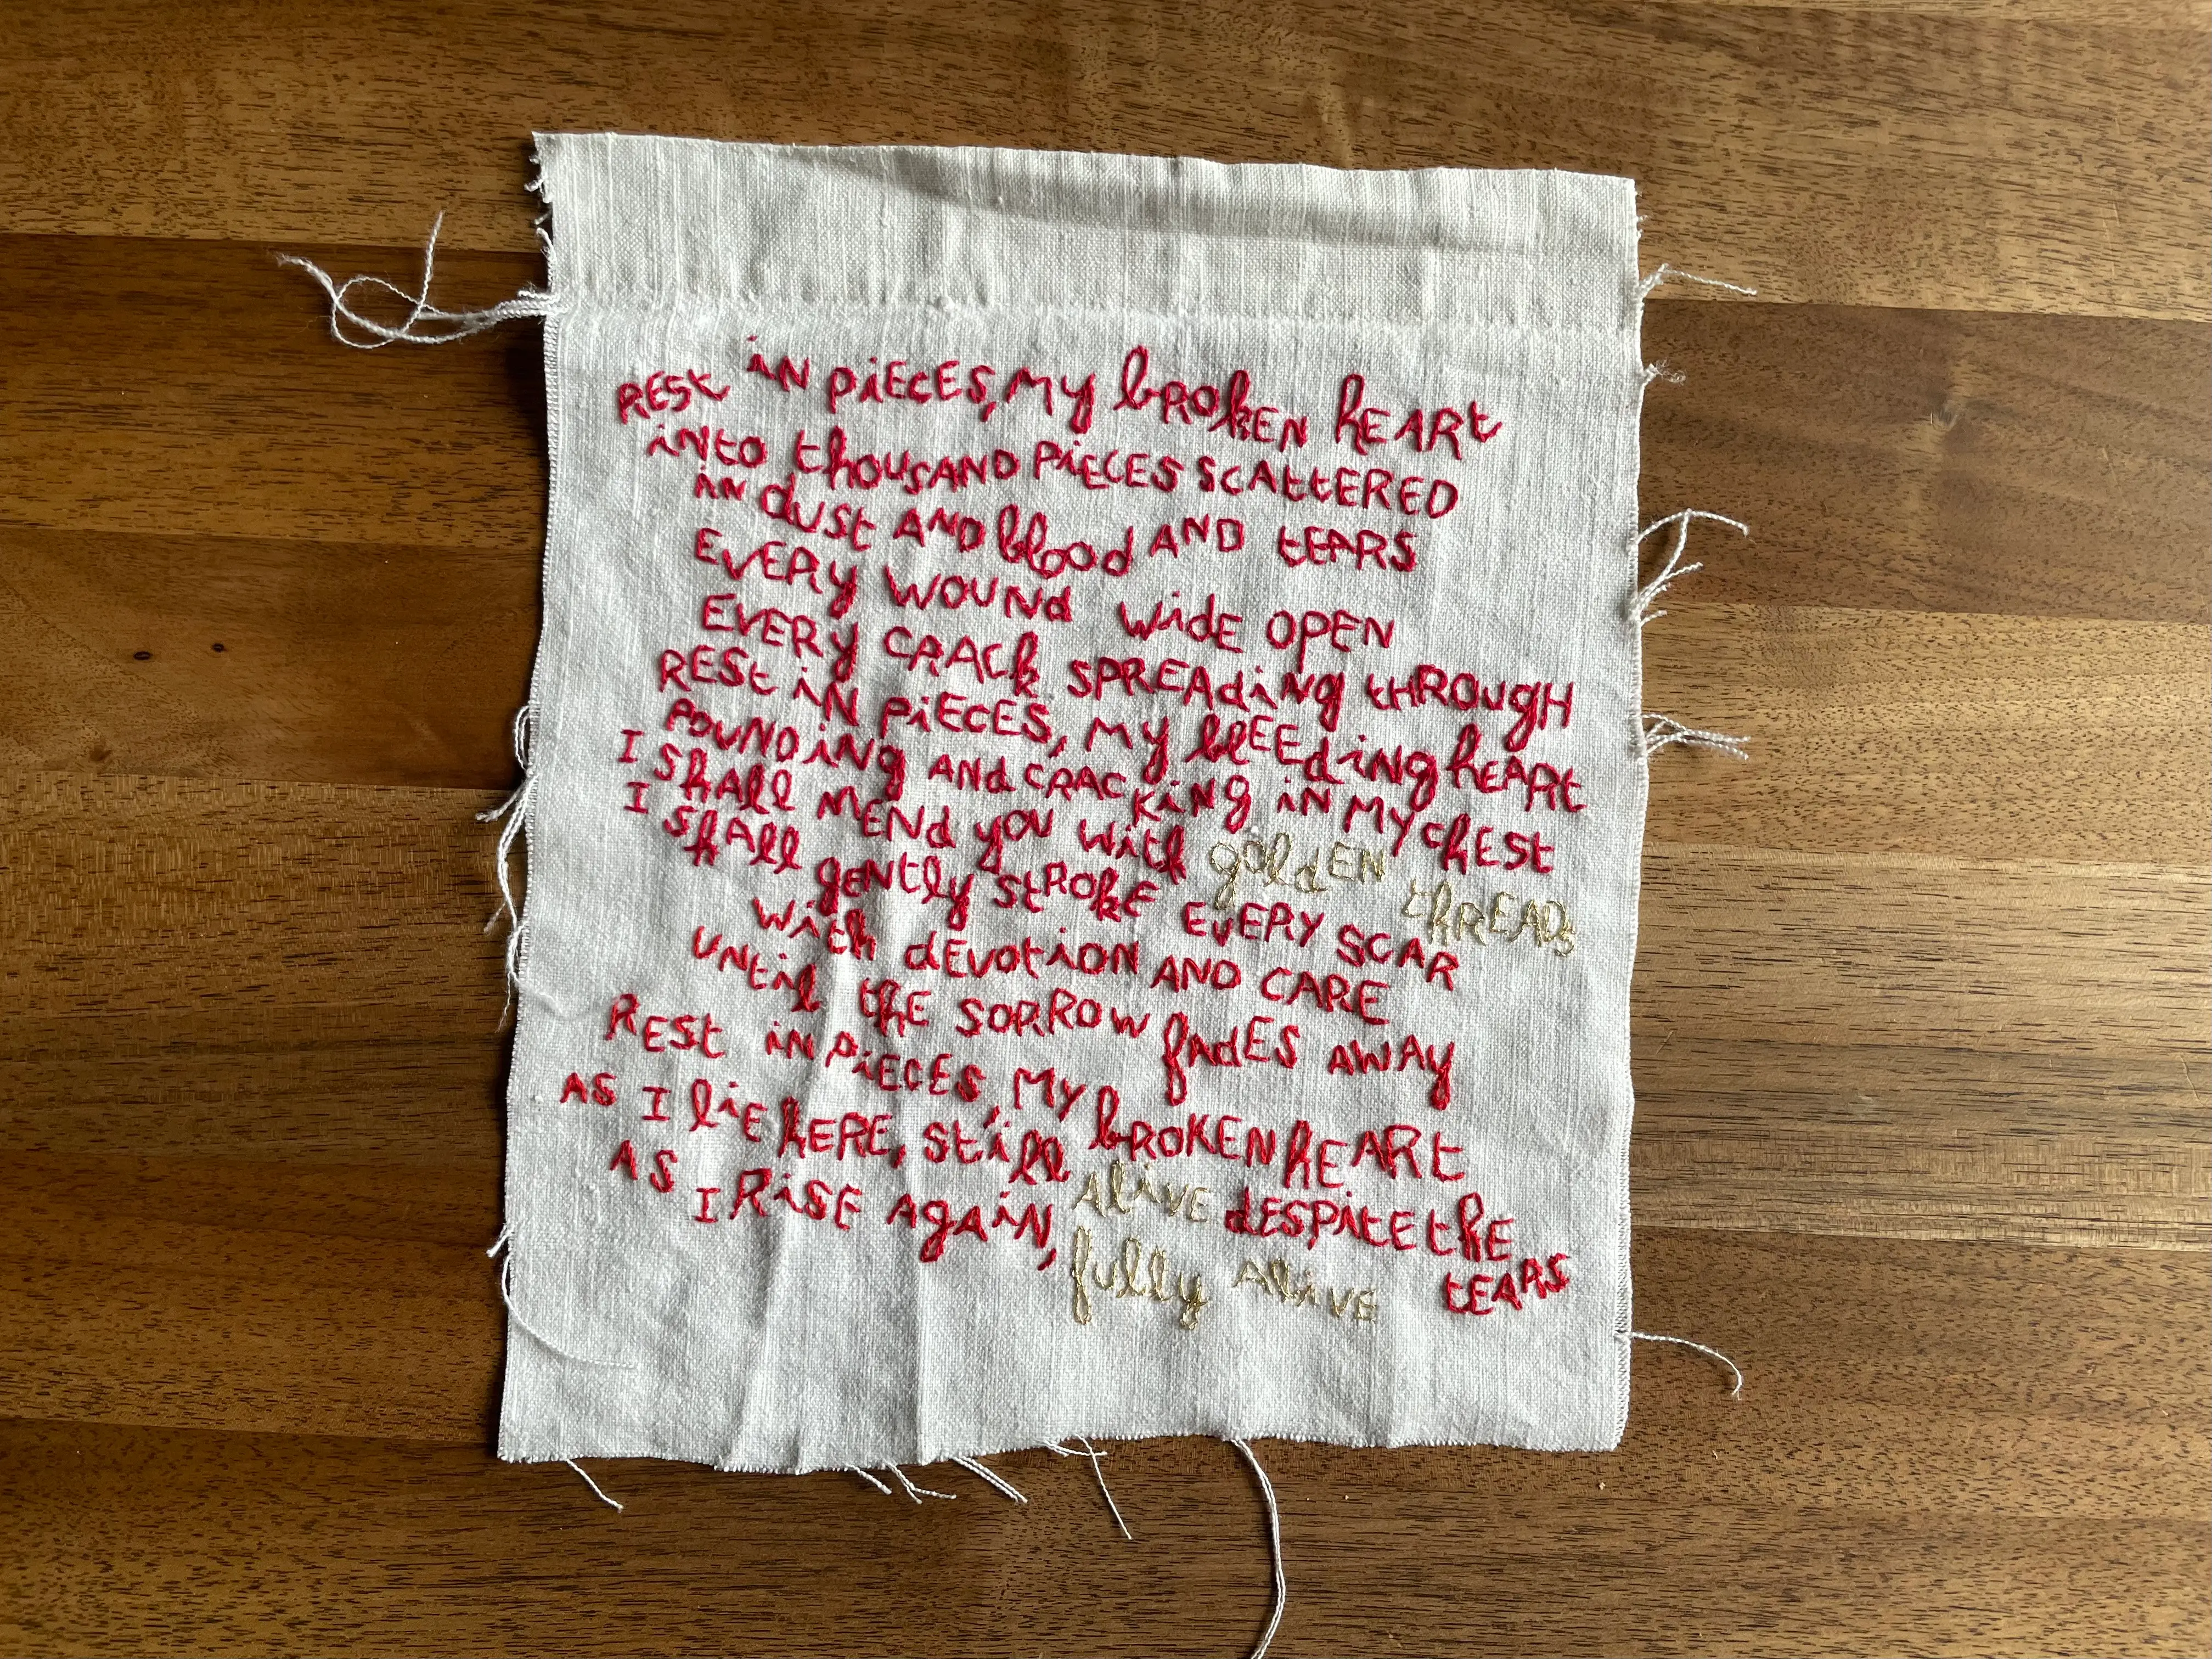 REST iN PiECES, MY bROKEN hEART
iNto thouSAND PiECES SCAttERED
iN dUSt AND blood AND tEARS
EVERY WOUNd WidE OPEN
EVERY CRACk SPREAdiNg tHROUgH
RESt iN PiECES, MY blEEdiNg hEARt
POUNDiNg ANd CRACKiNg iN MY ChESt
I ShAll MENd yOU With goldEN thREADs
I ShAll gENtly StROkE EVERY SCAR
With dEVOtiON AND CARE
UNtil thE SORROW fAdES AWAY
RESt iN PiECES, MY bROKEN hEARt
AS I liE hERE, Still AliVE dESPitE thE tEARS
AS I RiSE AgAiN, fully AliVE